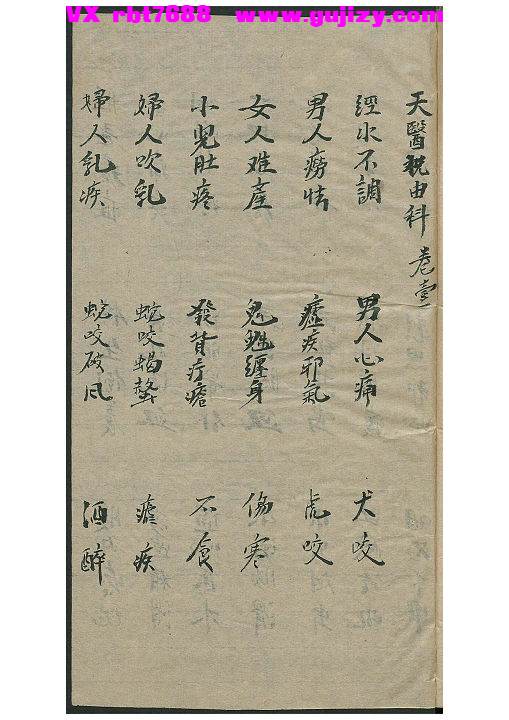 VX rbt7688 www.gujizy.com
天醫祝由科 卷壹
經水不調 男人心痛 犬咬
男人癆怯 瘧疾邪氣 虎咬
女人难產 鬼魅纏身 傷寒
小児肚疼 發背疔瘡 不食
婦人吹乳 蛇咬蝎螫 疾
婦人乳疾 蛇咬破风 酒醉